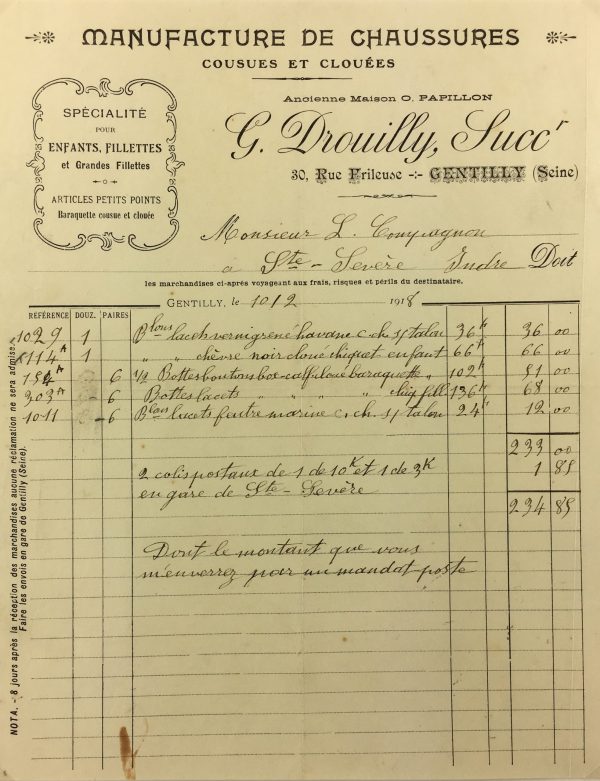 MANUFACTURE DE CHAUSSURES
COUSUES ET CLOUÉES
SPÉCIALITÉ
POUR
ENFANTS, FILLETTES
et Grandes Fillettes
ARTICLES PETITS POINTS
Baraquette cousue et clouée
Ancienne Maison O. PAPILLON
G. Drouilly, Succr
30, Rue Frileuse -:- GENTILLY (Seine)
Monsieur L. Compagnon
à Ste-Sevère Indre Doit
les marchandises ci-après voyageant aux frais, risques et périls du destinataire.
GENTILLY, le 10/2 1918
RÉFÉRENCE DOUZ. PAIRES
1029 1 Blons laceh vernigrené havane c. ch. s/ talon 36 fr 36 00
114 A 1 " " chèvre noir cloué chiquet enfant 66 fr 66 00
154 A 6 1/2 Bottes boutons box-calf cloué baraquette " 102 fr 51 00
303 A 6 Bottes lacets " " " " fill. 136 fr 68 00
1011 6 Blons lacets feutre marine c. ch. s/ talon 24 fr 12 00
233 00
2 colis postaux de 1 de 10K et 1 de 3K 1 85
en gare de Ste-Sevère
234 85
Dont le montant que vous
m'enverrez par un mandat poste
NOTA. - 8 jours après la réception des marchandises aucune réclamation ne sera admise.
Faire les envois en gare de Gentilly (Seine).